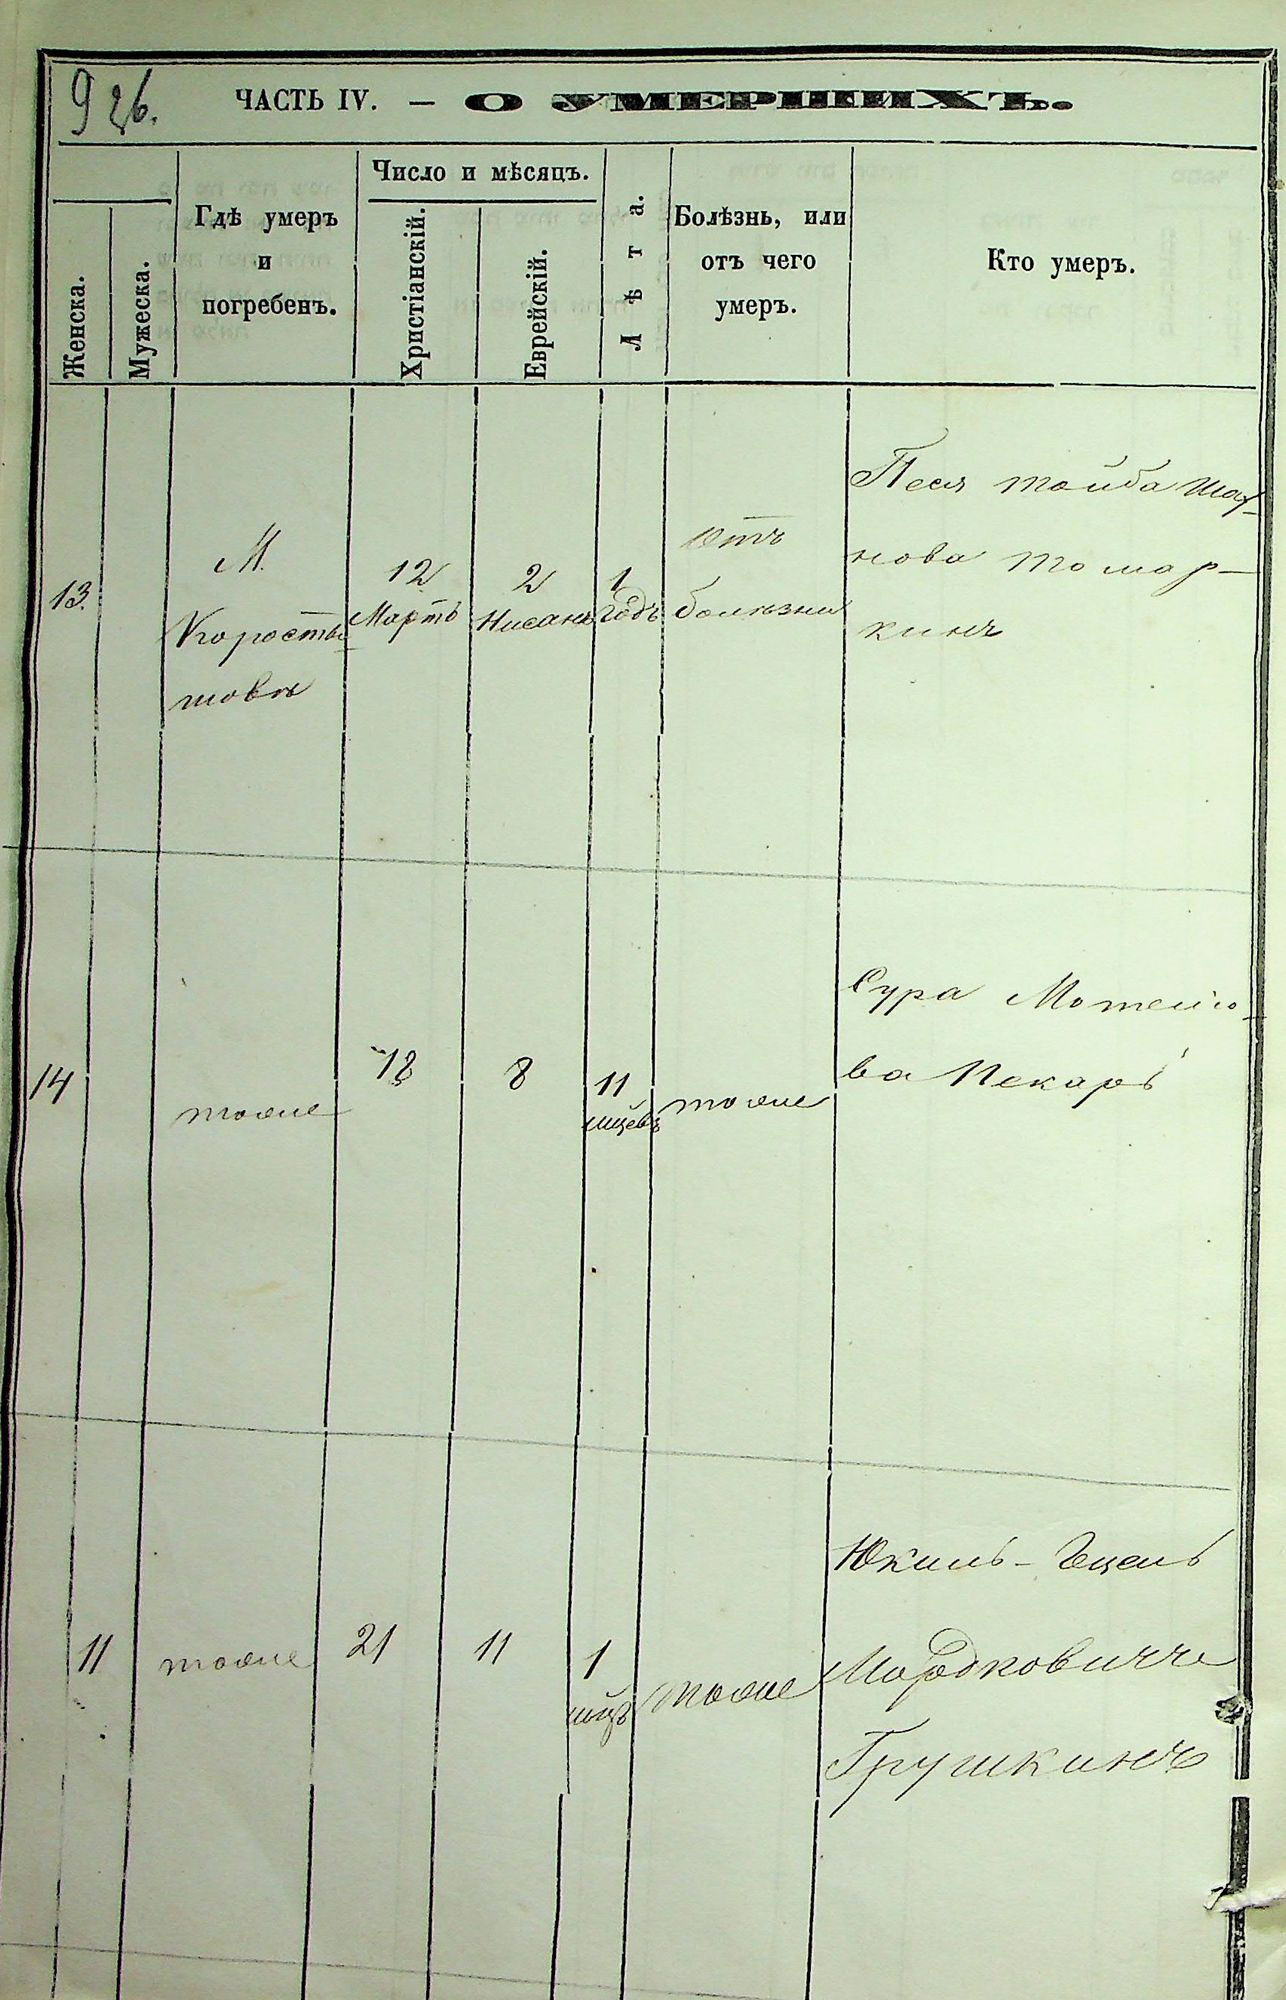 926.
ЧАСТЬ IV. — О УМЕРШИХЪ.
Женска.
Мужеска.
Гдѣ умеръ
и
погребенъ.
Число и мѣсяцъ.
Христіанскій.
Еврейскій.
Лѣта.
Болѣзнь, или
отъ чего
умеръ.
Кто умеръ.
13.
М.
Коросты-
шовѣ
12
Мартъ
2
Нисанъ
1
годъ
Отъ
болѣзни
Песя Тойба
нова Томар-
кинъ
14
тоже
18
8
11
мцевъ
тоже
Сура Мотелю-
ва Пекаръ
11
тоже
21
11
1
мцъ
тоже
Юкиль-Гецель
Мордковичъ
Грушкинъ